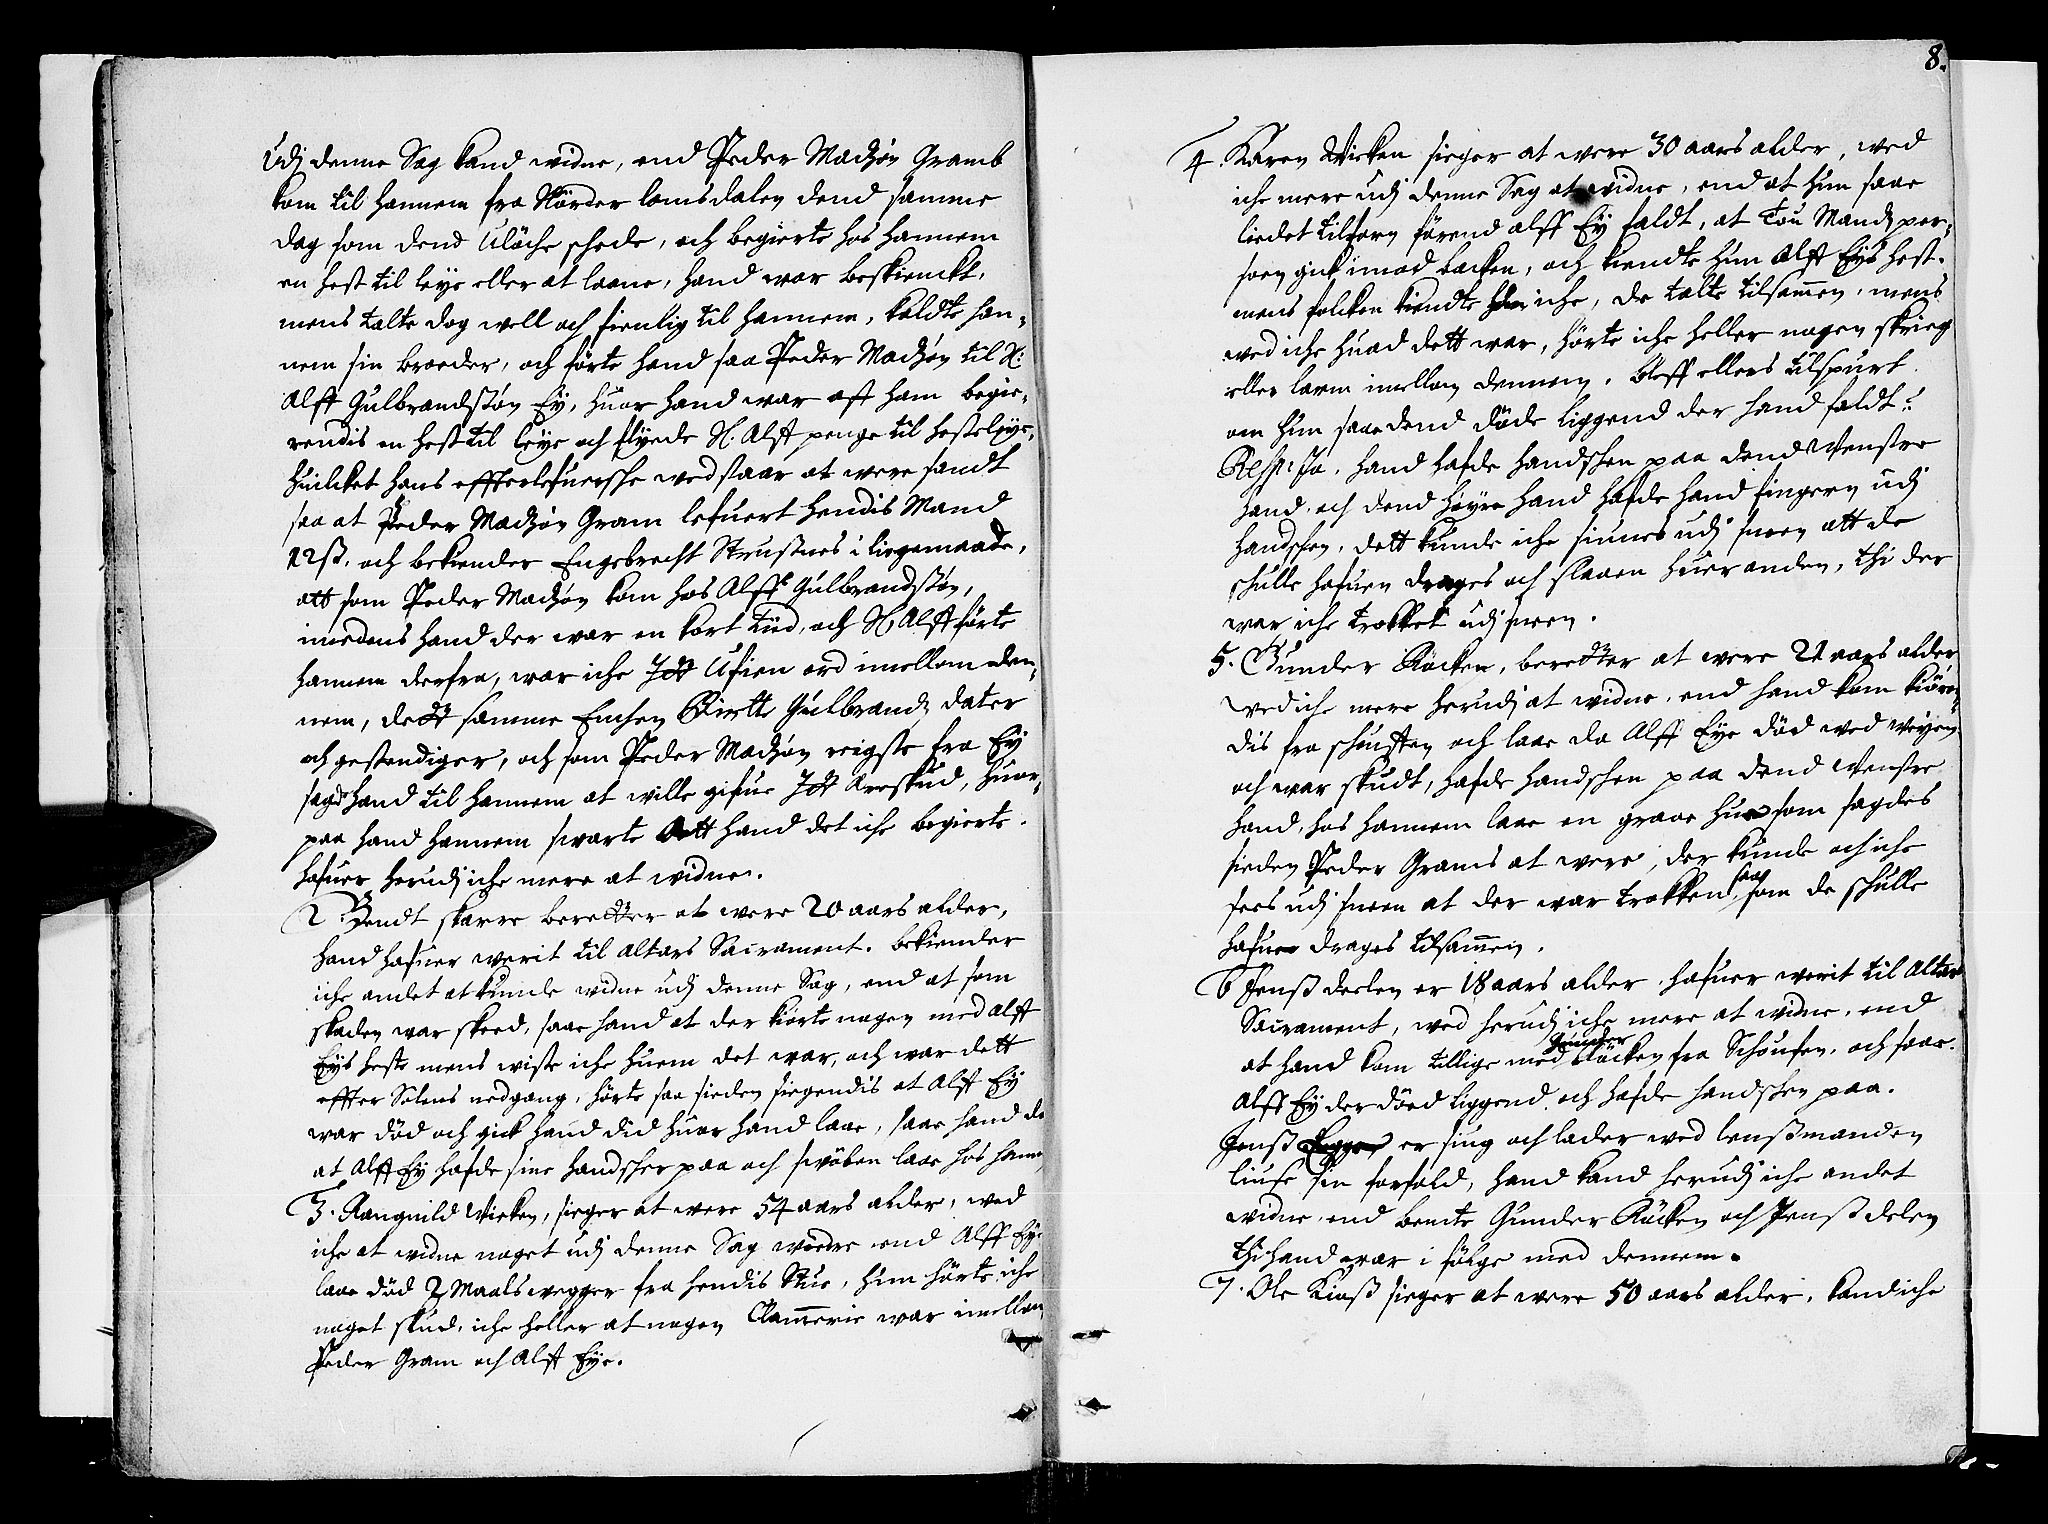 Udj denne Sag kand widne, end Peder Madzøn Gramb
kom til hannem fra Nörder lomsdalen dend samme
dag som dend Ulöche schede, och begierte hos hannem
en hest til leye eller at laane, hand war beskienckt,
mens talte dog well och fienlig til hannem, kaldte han-
nem sin broeder, och förte hand saa Peder Madzøn til S:
Alff Gulbrandsøn Ey, huor hand war aff ham begie-
rendis en hest til leye och flyede S. Alff penge til hesteleye,
huilcket hans effterlefuersche wedstaar at were sandt
saa at Peder Madzøn Gram lefuert hendis Mand
12ß. och bekiender Engebrecht Strustnes i liegemaade,
att som Peder Madzøn kom hos Alff Gulbrandsøn,
imedens hand der war en kort tiid, och S Alff förte
hannem derfra, war iche Itt Ufien ord imellom den-
nem, dett samme Enchen Birtte Gulbrandz dater
och gestendiger, och som Peder Madzøn reigste fra Ey
sagde hand til hannem at wille gifue Itt Æreskud, huor-
paa hand hannem swarte Att hand det iche begierte.
hafuer herudj iche mere at widne.
2 Bendt skarre beretter at were 20 aars alder,
hand hafuer werit til altars Sacrament. bekiender
iche andet at kunde widne udj denne Sag, end at som
skaden war skeed, saae hand at der kiörte nogen med Alff
Eys hest mens wiste iche huem det war, och war dett
effter Solens nedgang, hörte saa sieden siegendis at Alff Ey
war död och gick hand did huor hand laae, saae hand da
at Alff Ey hafde sine handscher paa och swöben laae hos ham
3. Rangnild Wieken, sieger at were 54 aars alder, wed
iche at widne noget udj denne Sag widre end Alff Eye
laae död 2 Maals wegger fra hendis Stue, hun hörte iche
noget skud, iche heller at nogen Clammerie war imellom
Peder Gram och Alff Eye.
8.
4. Karen Wieken sieger at were 30 aars alder, wed
iche mere udj denne Sag at widne, end at hun saae
liedet tilforn förend Alff Ey faldt, at tou Mandz per-
soen gick imod backen, och kiendte hun Alff Eys hest.
mens folcken kiendte hun iche, de talte tilsammen, mens
wed iche huad dett war, hörte iche heller nogen skrieg
eller larm imellom dennem. bleff ellers tilspurt
om hun saae dend döde liggend der hand faldt?
Resp: Ja. hand hafde handschen paa dend Wenstre
hand, och dend höyre hand hafde hand fingern udj
handschen, dett kunde iche siunes udj sneen att de
schulle hafuen drages och slaaen hueranden, thi der
war iche trokket udj sneen.
5. Gunder Röcken, beretter at were 21 aars alder
wed iche mere herudj at widne, end hand kom kiören-
dis fra schuffen och laae da Alff Eye död wed weyen
och war skudt, hafde handschen paa dend Wenstre
hand, hos hannem laae en graae hue som sagdes
sieden Peder Grams at were, der kunde och iche
sees udj sneen at der war trokken saa som de schulle
hafue drages tilsammen.
6 Jenß deelen er 18 aars alder. hafuer werit til Altar
Sacrament, wed herudj iche mere at widne, end
at hand kom tillige med Gunder Röcken fra Schoufen, och saae
Alff Ey der död liggend och hafde handschen paa.
Jenß er siug och lader wed lenßmanden
liuse sin forfald, hand kand herudj iche andet
widne, end bemte Gunder Röcken och Jenß delen
thi hand war i följe med dennem.
7. Ole Kinß sieger at were 50 aars alder, kand iche